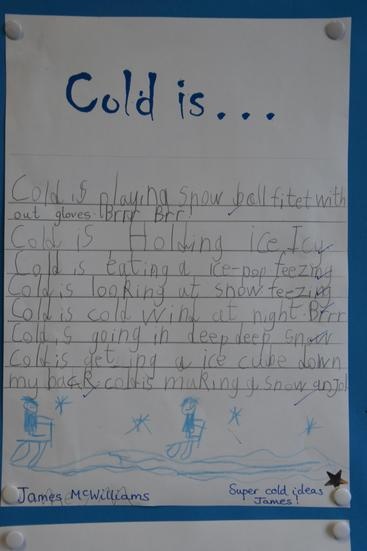 Cold is...
Cold is playing snow ball fitet with
out gloves. Brrr Brr!
Cold is Holding ice. Icy
Cold is eating a ice-pop feezing
Cold is looking at snow feezing
Cold is cold wind at night. Brrr
Cold is going in deep deep snow
Cold is geting a ice cube down
my back cold is making a snow anJol
James McWilliams
Super cold ideas
James!